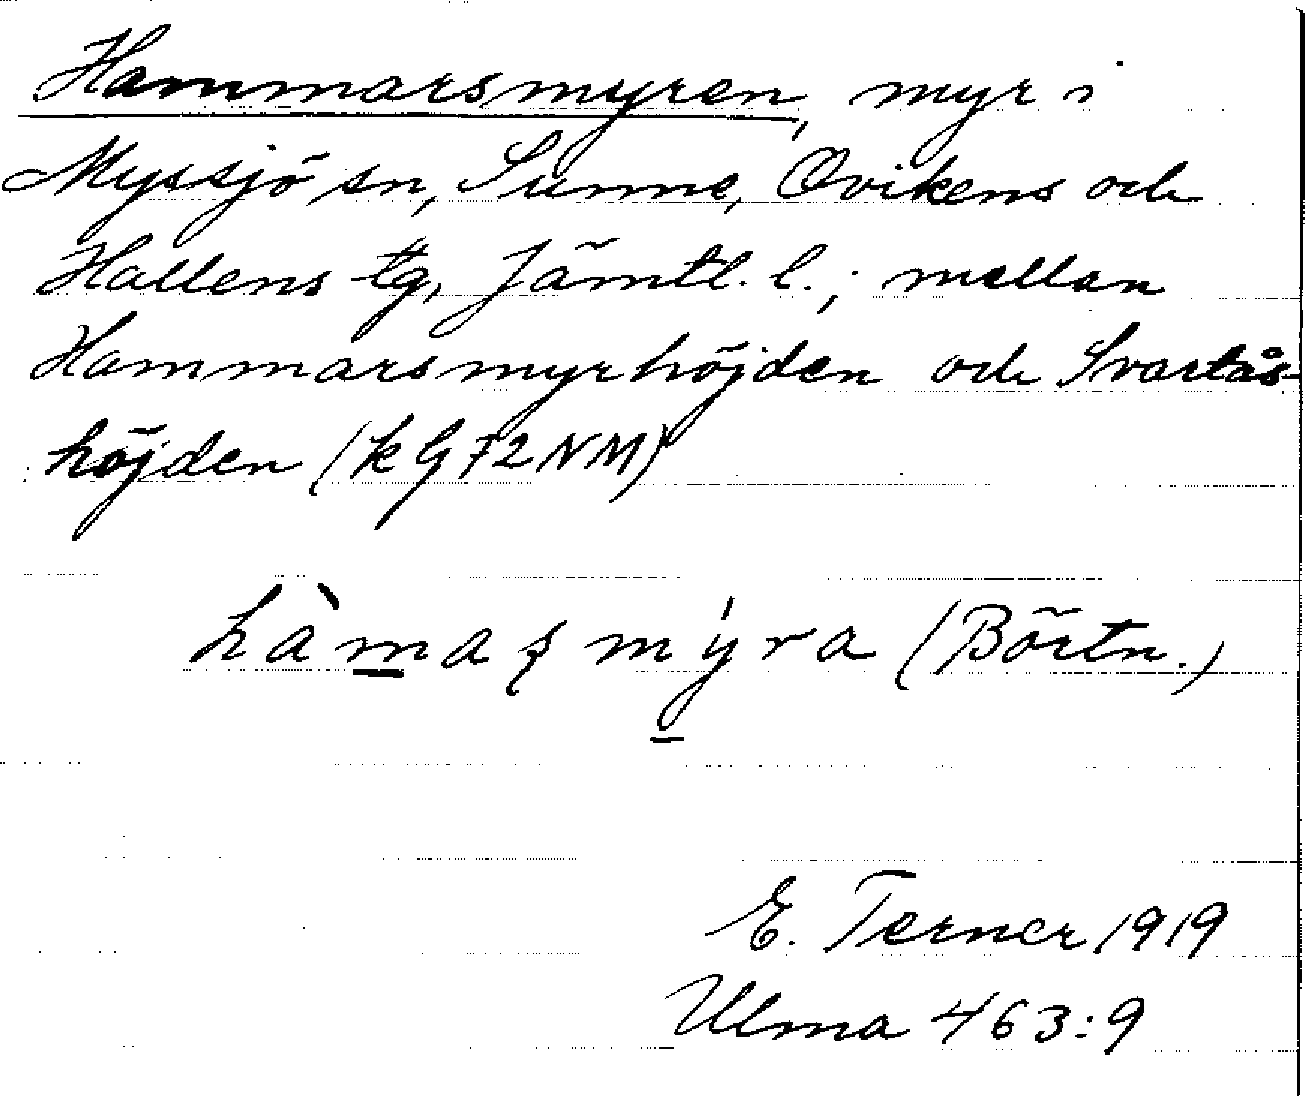 Hammarsmyren, myr i
Myssjö sn, Sunne, Ovikens och
Hallens tg, Jämtl. l.; mellan
Hammarsmyrhöjden och Svartås-
höjden (k G 72 NM)
hàmaʂmýra (Börtn.)
E. Terner 1919
Ulma 463:9